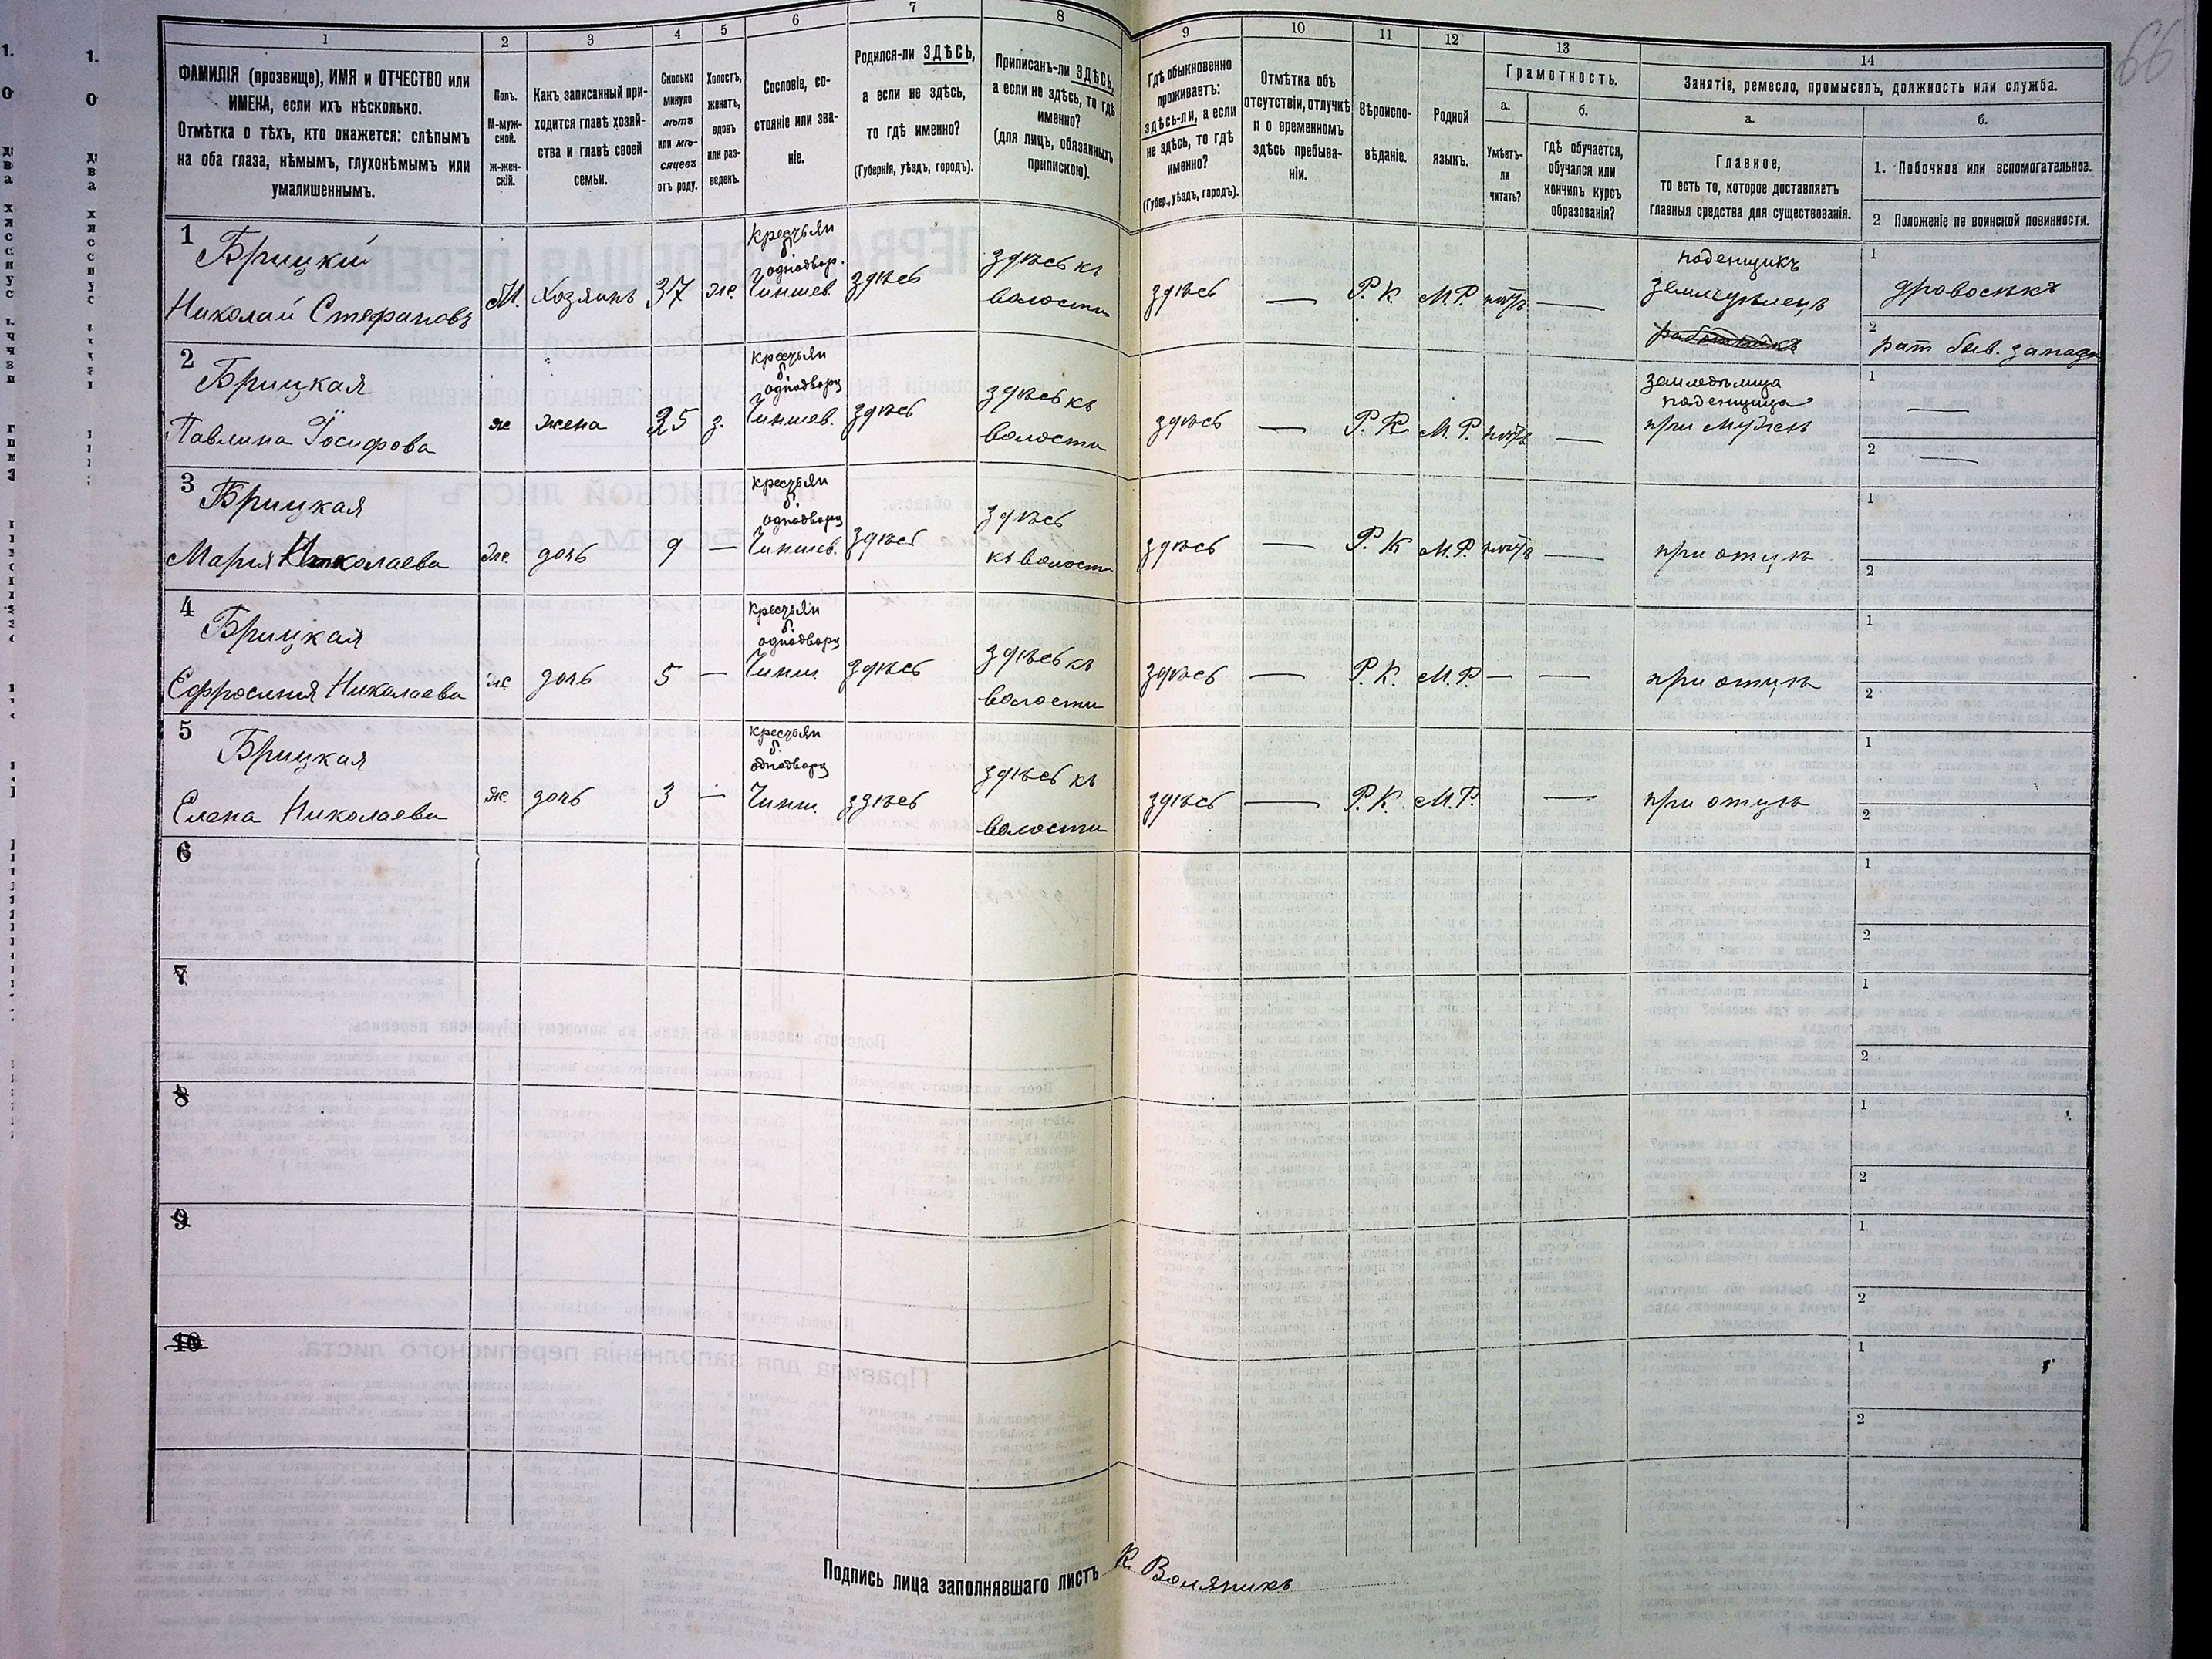 66
1 2 3 4 5 6 7 8 9 10 11 12 13 14
ФАМИЛІЯ (прозвище), ИМЯ и ОТЧЕСТВО или
ИМЕНА, если ихъ нѣсколько.
Отмѣтка о тѣхъ, кто окажется: слѣпымъ
на оба глаза, нѣмымъ, глухонѣмымъ или
умалишеннымъ.
Полъ.
М-муж-
ской.
Ж-жен-
скій.
Какъ записанный при-
ходится главѣ хозяй-
ства и главѣ своей
семьи.
Сколько
минуло
лѣтъ
или мѣ-
сяцевъ
отъ роду.
Холостъ,
женатъ,
вдовъ
или раз-
веденъ.
Сословіе, со-
стояніе или зва-
ніе.
Родился-ли ЗДѢСЬ,
а если не здѣсь,
то гдѣ именно?
(Губернія, уѣздъ, городъ).
Приписанъ-ли ЗДѢСЬ,
а если не здѣсь, то гдѣ
именно?
(для лицъ, обязанныхъ
припискою).
Гдѣ обыкновенно
проживаетъ:
здѣсь-ли, а если
не здѣсь, то гдѣ
именно?
(Губер., уѣздъ, городъ).
Отмѣтка объ
отсутствіи, отлучкѣ
и о временномъ
здѣсь пребыва-
ніи.
Вѣроиспо-
вѣданіе.
Родной
языкъ.
Грамотность.
а.
Умѣетъ-
ли
читать?
б.
гдѣ обучается,
обучался или
кончилъ курсъ
образованія?
Занятіе, ремесло, промыселъ, должность или служба.
а.
Главное,
то есть то, которое доставляетъ
главныя средства для существованія.
б.
1. Побочное или вспомогательное.
2 Положеніе по воинской повинности.
1 Брицкій
Николай Стефановъ
М. Хозяинъ 37 ж.
крестьян
б.
однодвор.
Чиншев.
здѣсь
здѣсь къ
волости
здѣсь — Р. К. М.Р. нѣтъ —
поденщикъ
земледѣлецъ
1 дровосѣкъ
2 рат
2 Брицкая
Павлина Іосифова
ж жена 35 з.
крестьян
б.
однодворц
Чиншев.
здѣсь
здѣсь къ
волости
здѣсь — Р. К. М.Р. нѣтъ —
земледѣлица
поденщица
при мужѣ
1 —
2 —
3 Брицкая
Мария Николаева
Ж. дочь 9 —
крестьян
б.
однодворц
Чиншев.
здѣсь
здѣсь
къ волости
здѣсь — Р. К М.Р. нѣтъ —
при отцѣ
1
2
4 Брицкая
Ефросиния Николаева
ж. дочь 5 —
крестьян
б.
однодворц
Чинш.
здѣсь
здѣсь къ
волости
здѣсь — Р. К. М.Р. — —
при отцѣ
1
2
5 Брицкая
Елена Николаева
ж. дочь 3 —
крестьян
б.
однодворц
Чинш.
здѣсь
здѣсь къ
волости
здѣсь — Р. К. М.Р. —
при отцѣ
1
2
6
1
2
7
1
2
8
1
2
9
1
2
10
1
2
Подпись лица заполнявшаго листъ К. Воляникъ